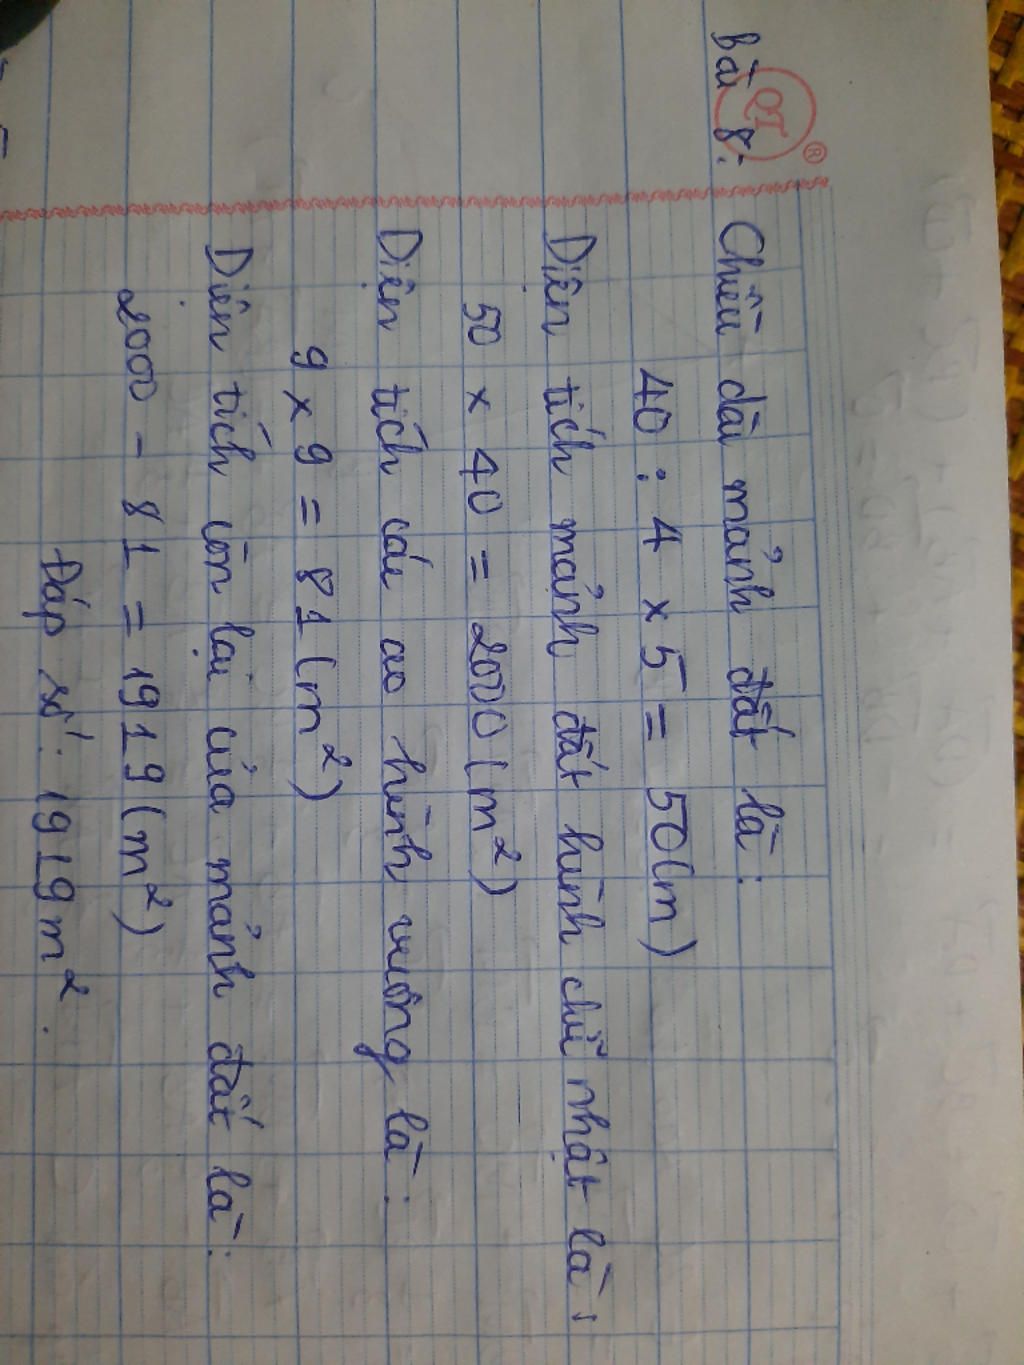 QT ®
Bài 8: Chiều dài mảnh đất là:
40 : 4 x 5 = 50(m)
Diện tích mảnh đất hình chữ nhật là:
50 x 40 = 2000(m²)
Diện tích cái ao hình vuông là:
9 x 9 = 81(m²)
Diện tích còn lại của mảnh đất là:
2000 - 81 = 1919(m²)
Đáp số: 1919m².